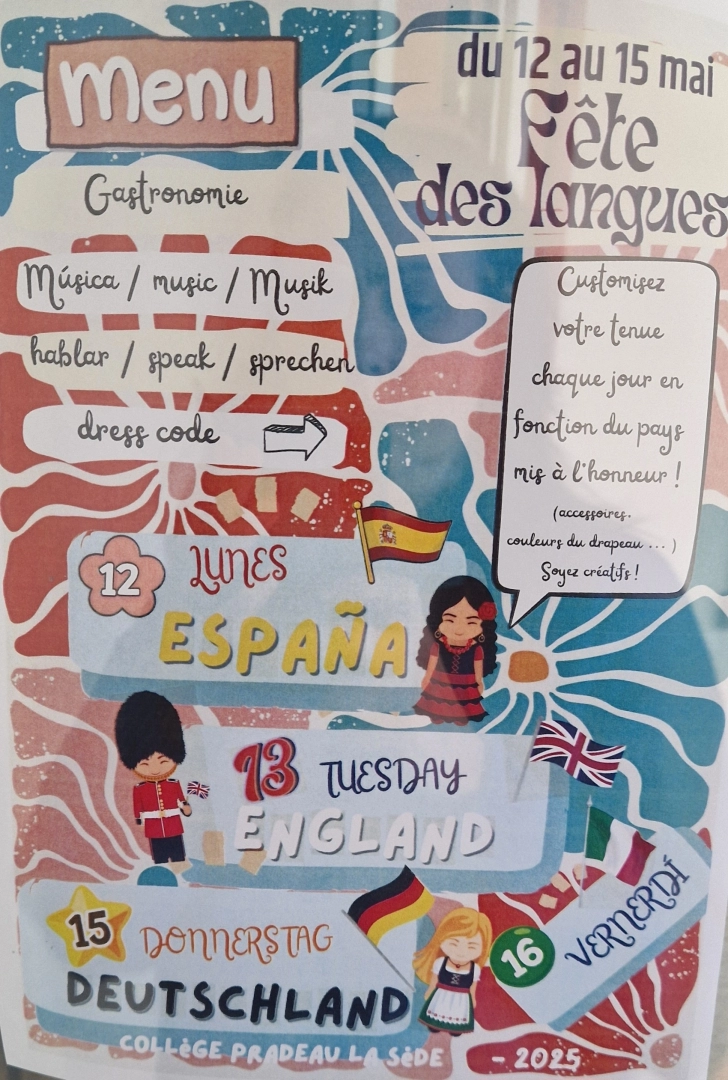 Menu
du 12 au 15 mai
Fête
des langues
Gastronomie
Música / music / Musik
hablar / speak / sprechen
dress code
Customisez
votre tenue
chaque jour en
fonction du pays
mis à l'honneur !
(accessoires,
couleurs du drapeau ... )
Soyez créatifs !
12 LUNES
ESPAÑA
13 TUESDAY
ENGLAND
15 DONNERSTAG
DEUTSCHLAND
16 VERNERDÍ
COLLèGE PRADEAU LA SèDE - 2025